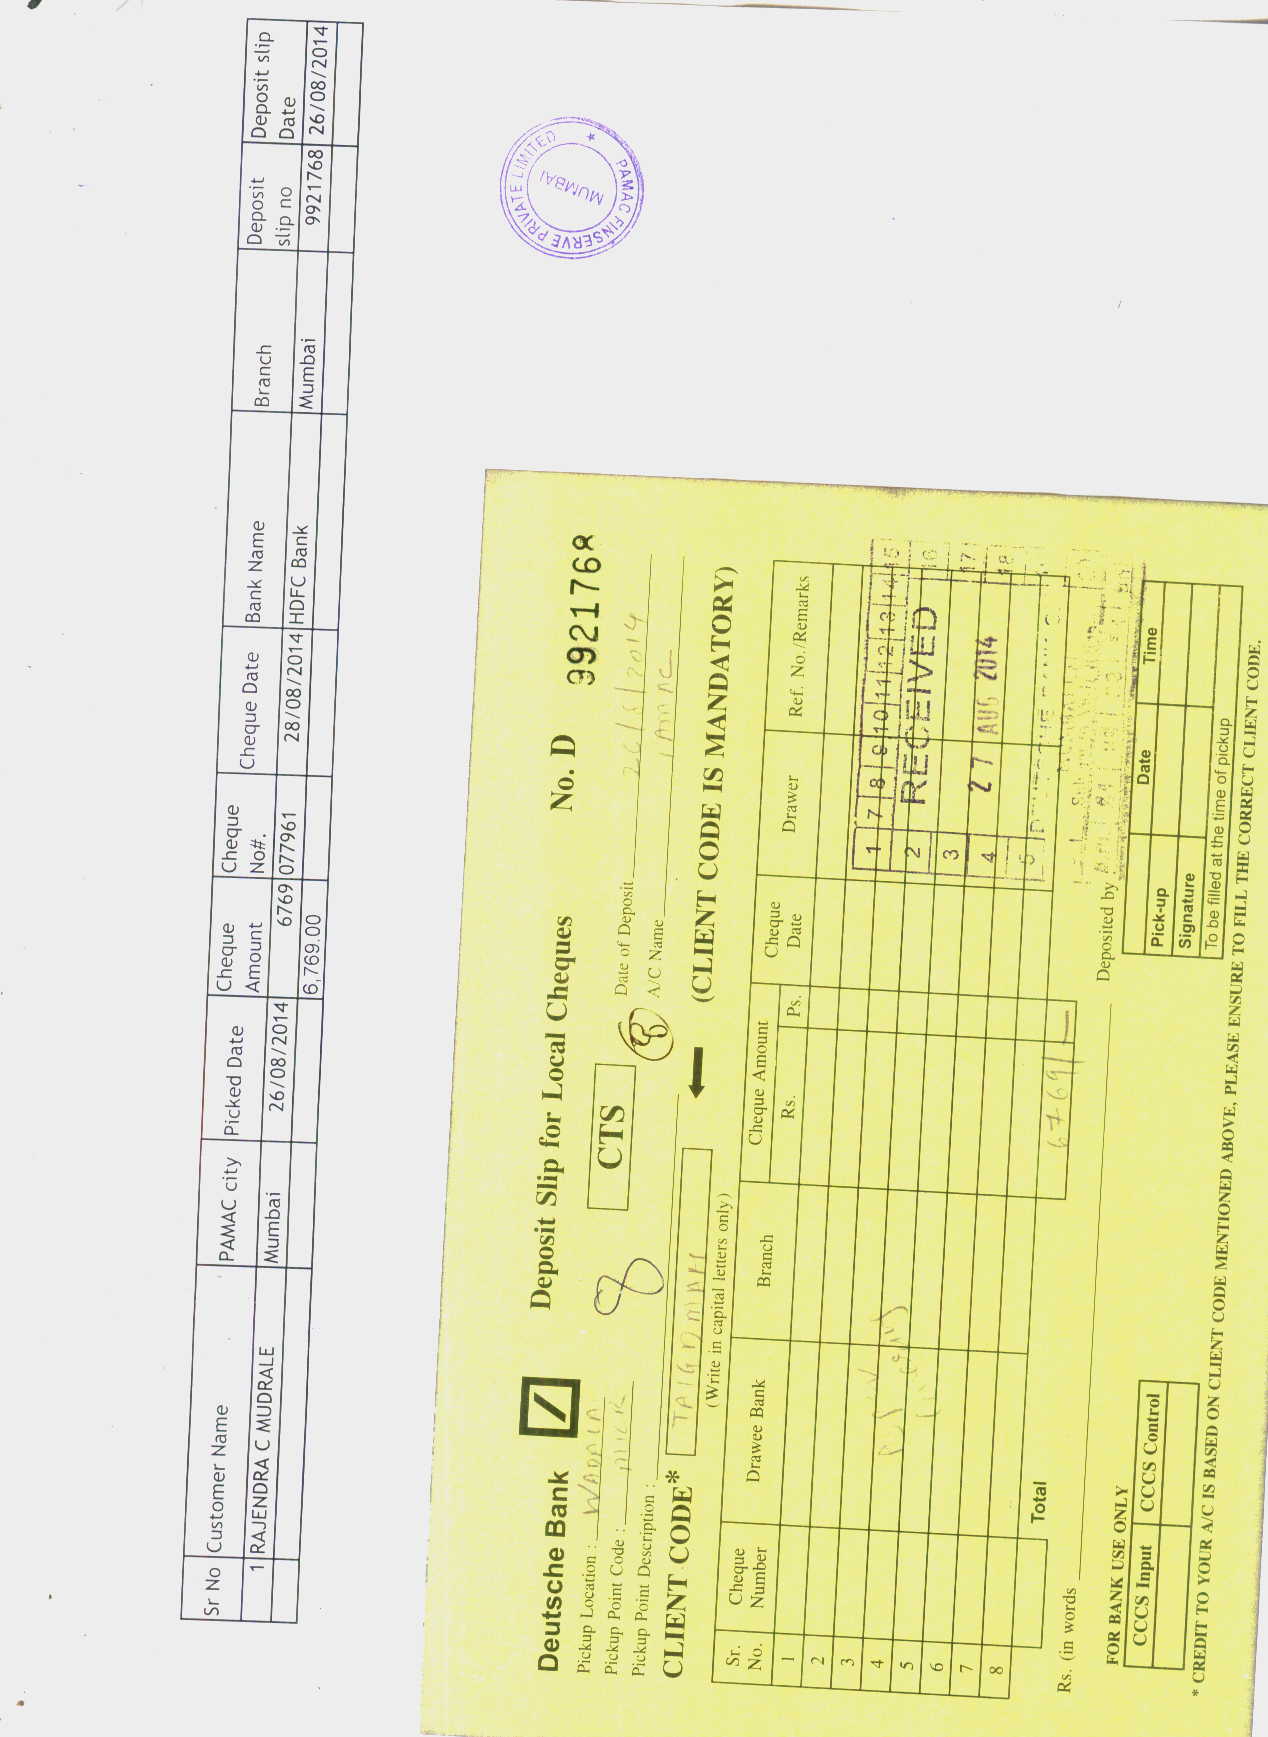 Sr No Customer Name PAMAC city Picked Date Cheque Amount Cheque No#. Cheque Date Bank Name Branch Deposit slip no Deposit slip Date
1 RAJENDRA C MUDRALE Mumbai 26/08/2014 6769 077961 28/08/2014 HDFC Bank Mumbai 9921768 26/08/2014
6,769.00
PAMAC FINSERVE PRIVATE LIMITED ★
MUMBAI
Deutsche Bank Deposit Slip for Local Cheques No. D 9921768
Pickup Location : WADALA CTS Date of Deposit 26/8/2014
Pickup Point Code : A/C Name
Pickup Point Description :
CLIENT CODE* (CLIENT CODE IS MANDATORY)
(Write in capital letters only)
Sr. No. Cheque Number Drawee Bank Branch Cheque Amount Cheque Date Drawer Ref. No./Remarks
Rs. Ps.
1
2
3
4
5
6
7
8
1 7 8 9 10 11 12 13 14 15
2 RECEIVED 16
3 17
4 27 AUG 2014 18
5
Total 6769/-
Rs. (in words Deposited by
FOR BANK USE ONLY
CCCS Input CCCS Control
Date Time
Pick-up
Signature
To be filled at the time of pickup
* CREDIT TO YOUR A/C IS BASED ON CLIENT CODE MENTIONED ABOVE, PLEASE ENSURE TO FILL THE CORRECT CLIENT CODE.